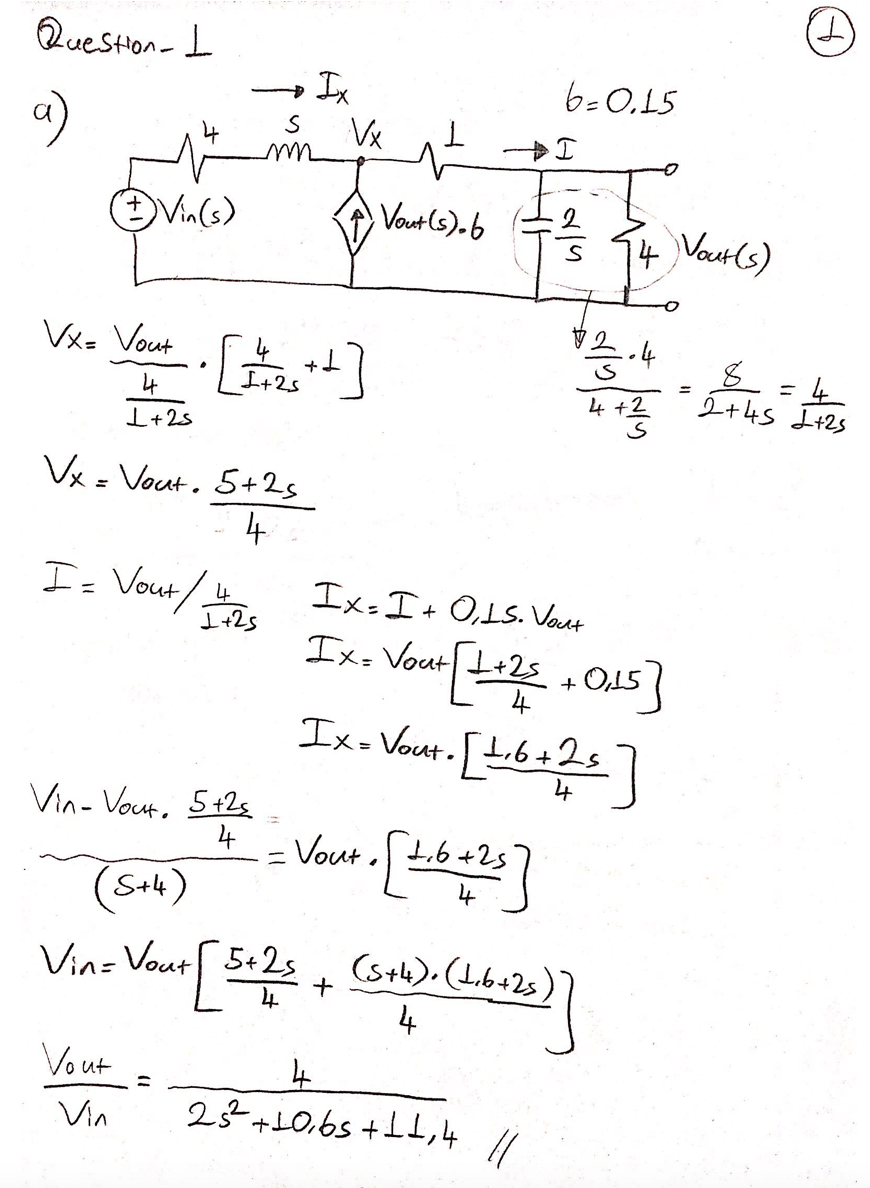 Question-1
1
a)
Ix
b=0.15
4
s
Vx
1
I
+
-
Vin(s)
Vout(s).b
2/s
4
Vout(s)
Vx = Vout / (4/(1+2s)) . [4/(1+2s) + 1]
(2/s . 4)/(4 + 2/s) = 8/(2+4s) = 4/(1+2s)
Vx = Vout . (5+2s)/4
I = Vout / (4/(1+2s))
Ix = I + 0,15. Vout
Ix = Vout [(1+2s)/4 + 0,15]
Ix = Vout . [(1,6+2s)/4]
(Vin - Vout . (5+2s)/4)/(s+4) = Vout . [(1,6+2s)/4]
Vin = Vout [(5+2s)/4 + ((s+4).(1,6+2s))/4]
Vout/Vin = 4/(2s²+10,6s+11,4) //